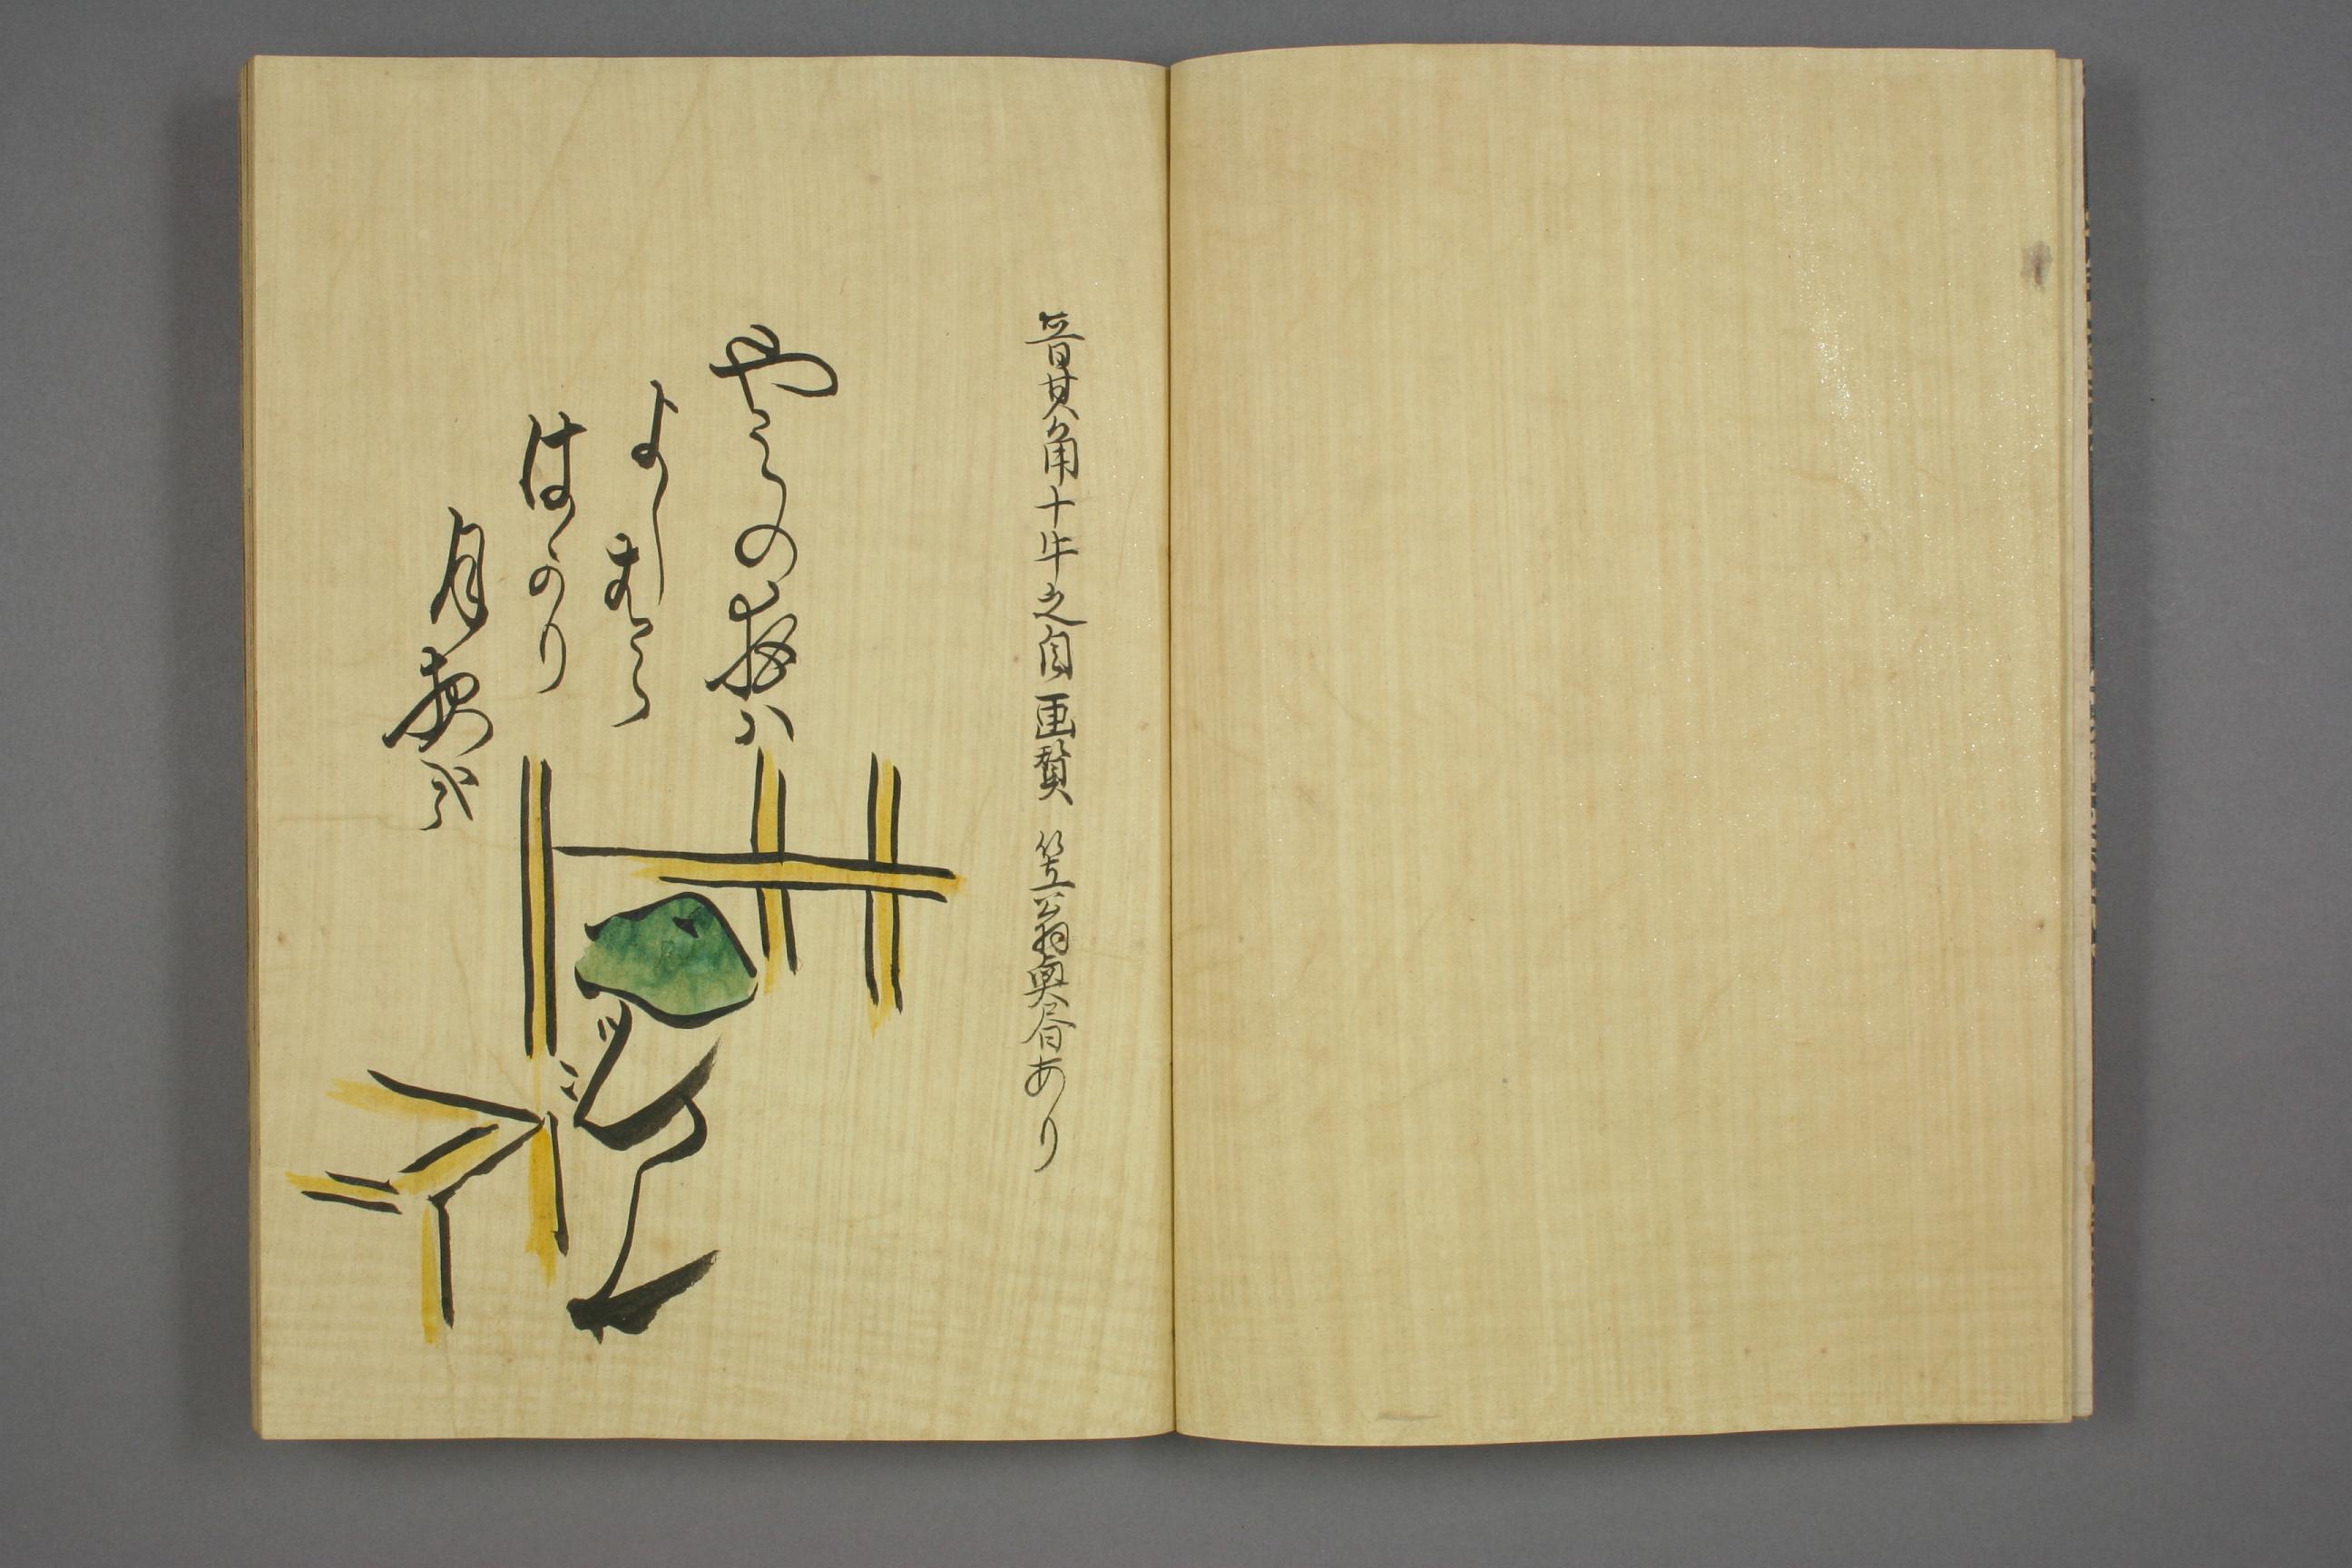 晋其角十牛之自画賛 笠翁奥書あり
やミの夜ハ
よしはら
はかり
月夜哉